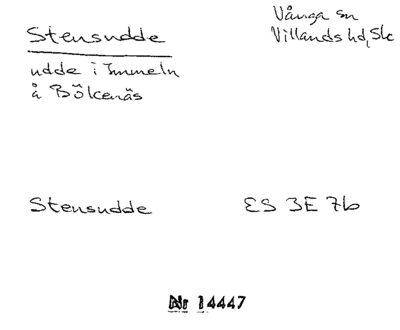 Stensudde
Vånga sn
Villands hd, Sk
udde i Immeln
å Bökenäs
Stensudde
ES 3E 7b
Nr 14447